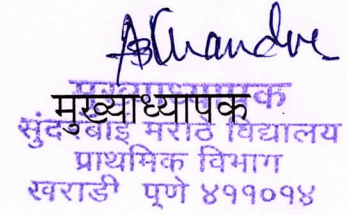 मुख्याध्यापक
मुख्याध्यापक
सुंदरबाई मराठे विद्यालय
प्राथमिक विभाग
खराडी पुणे ४११०१४